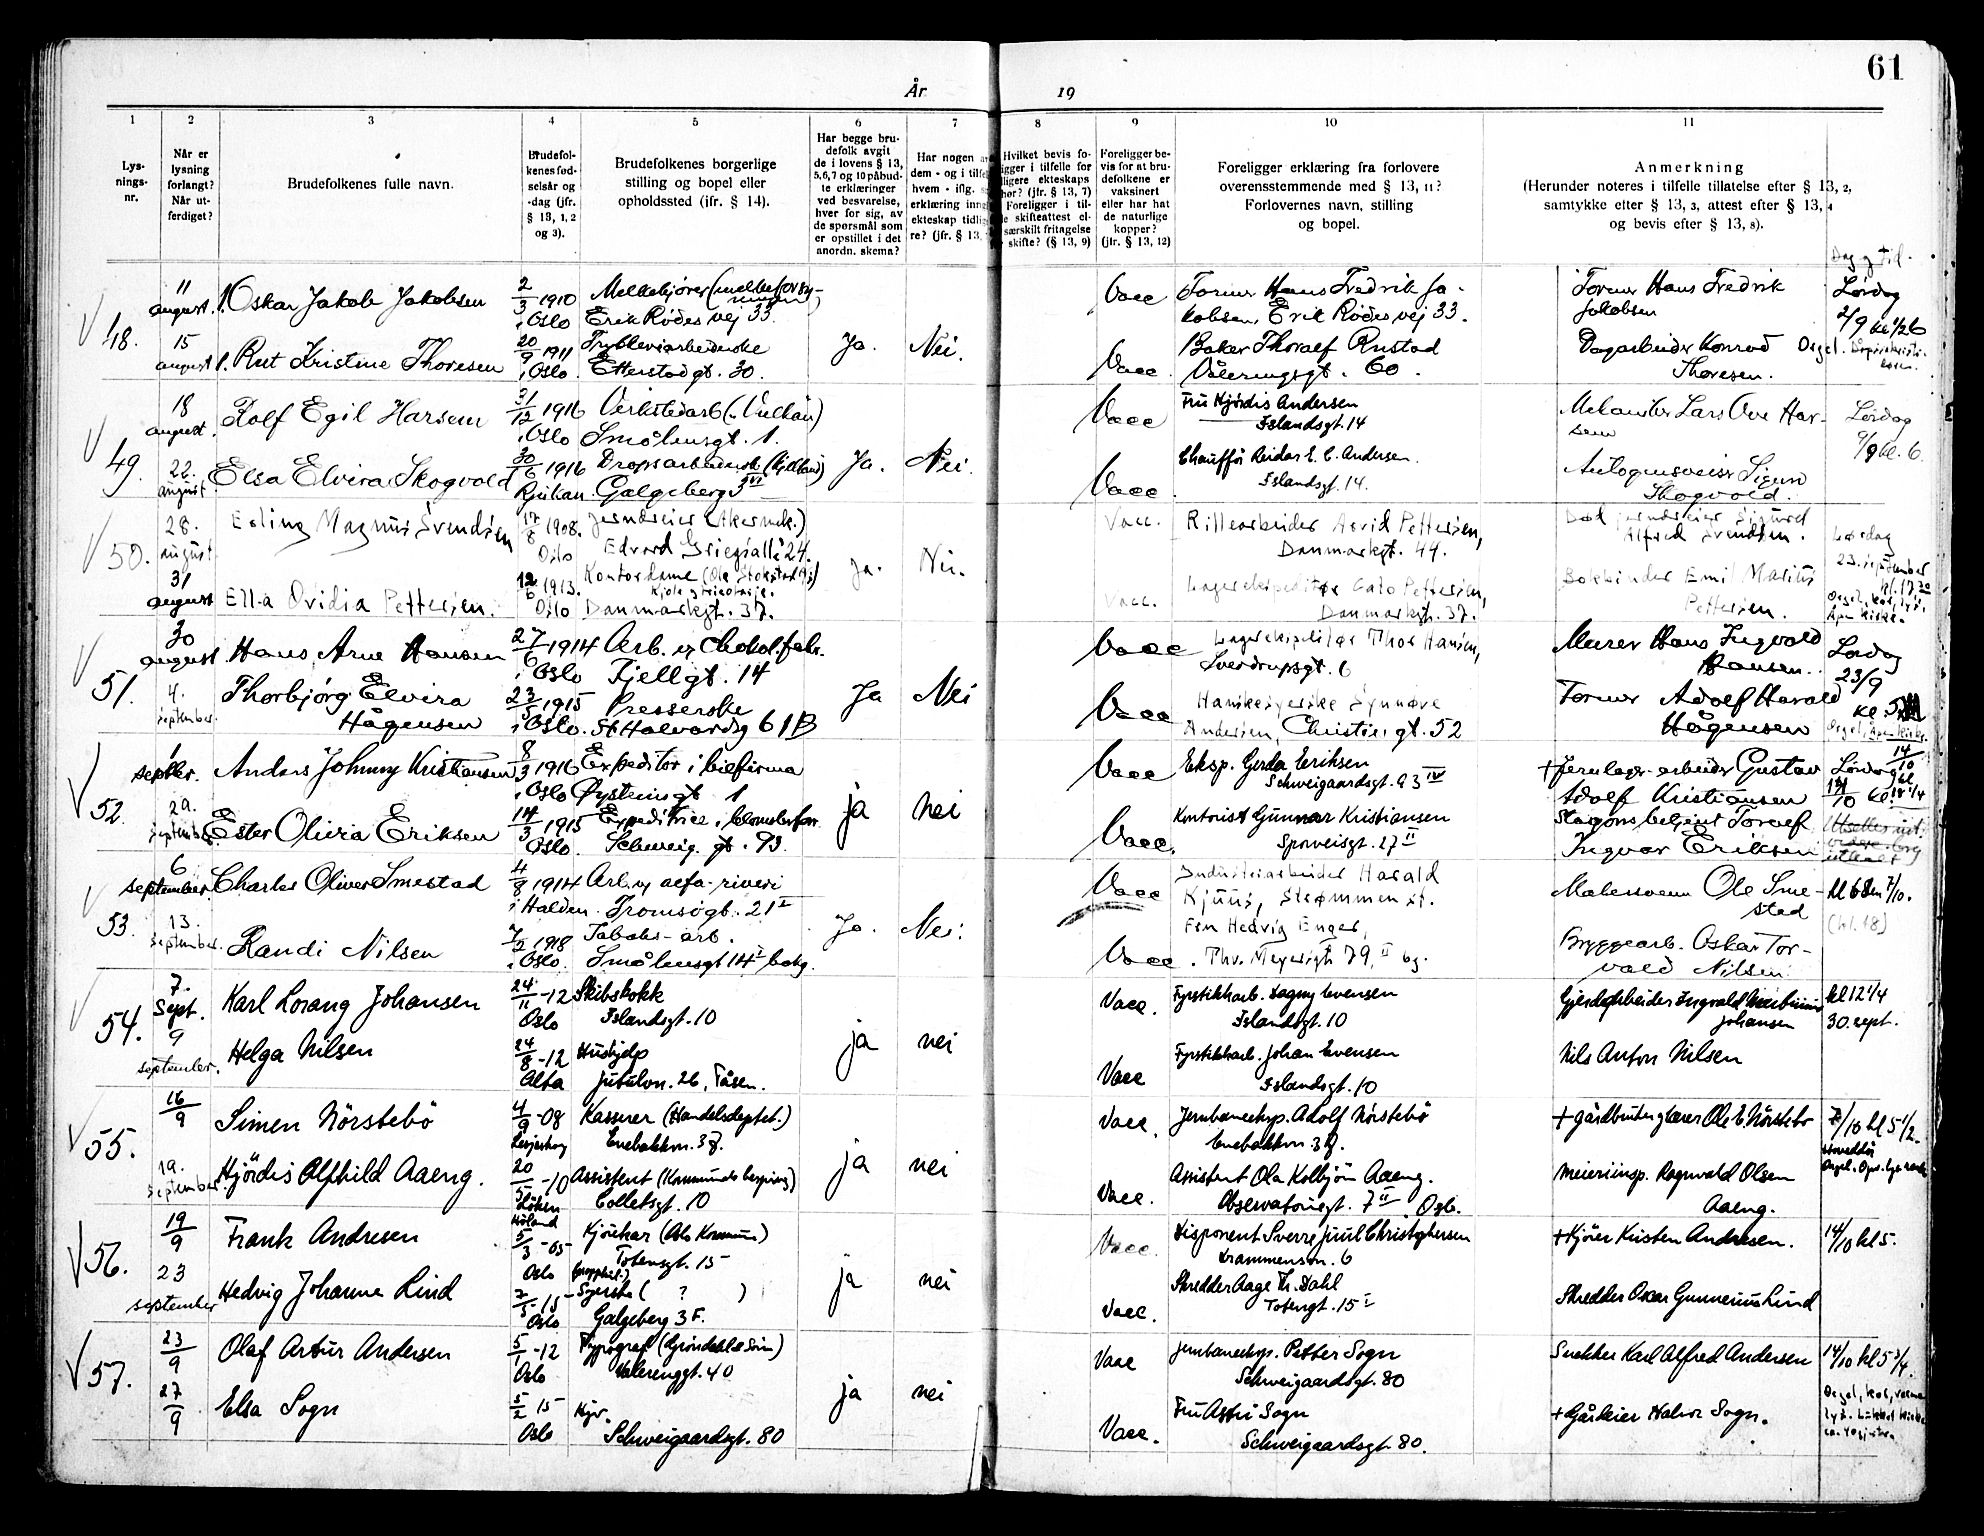 61
År 19
1 2 3 4 5 6 7 8 9 10 11
Lys-
nings-
nr.
Når er
lysning
forlangt?
Når ut-
ferdiget?
Brudefolkenes fulle navn.
Brudefol-
kenes fød-
selsår og
-dag (jfr.
§ 13, 1, 2
og 3).
Brudefolkenes borgerlige
stilling og bopel eller
opholdssted (jfr. § 14).
Har begge bru-
defolk avgit
de i lovens § 13,
5,6,7 og 10 påbud-
te erklæringer
ved besvarelse,
hver for sig, av
de spørsmål som
er opstillet i det
anordn. skema?
Har nogen
dem - og i
hvem - iflg.
erklæring
ekteskap
re? (jfr. § 13,
Hvilket bevis fo-
igger i tilfelle for
ligere ekteskaps
hør? (jfr. § 13, 7)
Foreligger i til-
e skifteattest el-
særskilt fritagelse
skifte? (§ 13, 9)
Foreligger be-
vis for at bru-
defolkene er
vaksinert
eller har hat
de naturlige
kopper?
(jfr. § 13, 12)
Foreligger erklæring fra forlovere
overensstemmende med § 13, 11?
Forlovernes navn, stilling
og bopel.
Anmerkning
(Herunder noteres i tilfelle tillatelse efter § 13, 2,
samtykke efter § 13, 3, attest efter § 13, 4
og bevis efter § 13, 8).
Dag og tid.
48.
11 august. Oskar Jakob Jakobsen 2/3 1910 i Oslo
Erik Rødes vej 33.
Vacc
Hans Fredrik Ja-
kobsen, Erik Rødes vej 33.
Hans Fredrik
Jakobsen
Lørdag
2/9
15 august. Rut Kristine Thoresen 20/9 1911 i Oslo.
Etterstadgt. 30.
Ja. Nei.
Vacc.
Baker Thoralf Rustad
Vålerengsgt. 60.
Dagarbeider Konrad
Thoresen.
Orgel.
49.
18 august. Rolf Egil Harsem 31/12 1916 i Oslo
Verkstedarb (Vulkan)
Smålensgt. 1.
Vacc
Fru Hjørdis Andersen
Islandsgt. 14
Mekaniker Lars Ove Har-
sem
Lørdag
9/9 kl. 6.
22. august Elsa Elvira Skogvold 30/6 1916 Rjukan.
Galgeberg 3 VI
Ja. Nei.
Vacc.
Chauffør Reidar E. C. Andersen.
Islandsgt. 14.
Skogvold.
50.
28. august Erling Magnus Svendsen 17/8 1908. Oslo
Jerndreier (Akersmek.)
Edvard Griegsallé 24.
Vacc.
Rillearbeider Astrid Pettersen,
Danmarkgt. 44.
Død jerndreier Sigurd
Alfred Svendsen.
Lørdag
23. september
kl. 17.30
31 august Ella Ovidia Pettersen. 12/6 1913. Oslo
Kontordame
Danmarkgt. 37.
Ja. Nei.
Vacc.
Lagerekspeditør Cato Pettersen,
Danmarkgt. 37.
Bokbinder Emil Marius
Pettersen.
51.
30 august Hans Arne Hansen 27/6 1914 i Oslo
Arb. v/ Chokol.fabr.
Fjellgt. 14
Vacc
Lagerekspeditør Thor Hansen,
Sverdrupsgt. 6
Murer Hans Ingvald
Hansen.
Lørdag
23/9
4. september. Thorbjørg Elvira
Hågensen 23/5 1915 i Oslo.
Presserske
St Halvardsg 61 B
Ja Nei
Vacc
Hanskesyerske Synnøve
Andersen, Christiesgt. 52
Former Adolf Harald
Hågensen
52.
1 septbr. Anders Johnny Kristiansen 8/3 1916 i Oslo
Expeditør i bilfirma
Øysteinsgt 1
Vacc
Eksp. Gerda Eriksen
Schweigaardsgt. 93 IV
Gustav
Adolf Kristiansen
Lørdag 14/10
29. september. Ester Olivia Eriksen 14/3 1915 Oslo.
Expeditrice i blomsterforr.
Schweig. gt. 93.
ja nei
Vacc.
Kontorist Gunnar Kristiansen
Sporveisgt. 27 II
Toralf
Ingvar Eriksen
53.
6 september. Charles Oliver Smestad 4/8 1914 i Halden.
Tromsøgt. 21 I
Vacc
Industriarbeider Harald
Kjuus, Strømmen st.
Malersvenn Ole Sme-
stad
kl 6 den 7/10.
(kl. 18)
13. september. Randi Nilsen 7/2 1918 i Oslo.
Tabaks-arb.
Smålensgt 14 I bakg.
Ja. Nei.
Vacc.
Frn Hedvig Enger,
Thv. Meyersgt 79, II bg.
Bryggearb. Oskar Tor-
vald Nilsen
54.
7. Sept. Karl Lorang Johansen 24/11-12 Oslo
Skibskokk
Islandsgt. 10
Vacc.
Fyrstikkarb. Dagny Evensen
Islandsgt. 10
Johansen
kl 12 1/4
30. sept.
9 september. Helga Nilsen 24/8-12 Alta
Hushjelp
Jutulvn. 26, Tåsen.
ja nei
Vacc
Fyrstikkarb. Johan Evensen
Islandsgt. 10
Nils Anton Nilsen
55.
16/9 Simen Nörstebö 4/9-08
Kasserer (Handelsdeptet.)
Enebakkvn. 37.
Vacc.
Jernbaneeksp. Adolf Nörstebö
Enebakkvn 37.
+ gårdbruker Ole E. Nörstebö
7/10 kl 5 1/2.
19. september Hjördis Alfhild Aaeng. 20/5-10 Löken Höland
Assistent
Colletsgt. 10
ja nei
Vacc.
Assistent Ola Kolbjön Aaeng.
Observatoriegt. 7 II Oslo.
Meieriinsp. Ragnvald Olsen
Aaeng.
56.
19/9 Frank Andresen 5/3-05 Oslo
(Oslo Kommune)
Totensgt. 15
Vacc.
Disponent Sverre Juul Christophersen
Drammensvn. 6
+ Kjörer Kristen Andresen.
14/10 kl 5.
23 september Hedvig Johanne Lind 7/5-15 Oslo
Syerske ( ? )
Galgeberg 3 F.
ja nei
Vacc.
Skredder Aage Th. Dahl
Totengt. 15 I
Skredder Oskar Gunnerius Lind
57.
23/9 Olaf Artur Andersen 5/1-12 Oslo
Typograf (Gröndahl & Sön)
Valerenggt. 40
Vacc
Jernbaneeksp. Petter Sogn
Schweigaardsgt. 80
Snekker Karl Alfred Andersen
14/10 kl 5 3/4.
27/9 Elsa Sogn 5/2 15 Oslo
Hjv.
Schweigaardsgt. 80
ja nei
Vacc.
Fru Astri Sogn
Schweigaardsgt. 80.
+ Gårdeier Halvor Sogn.
Orgel, kor,